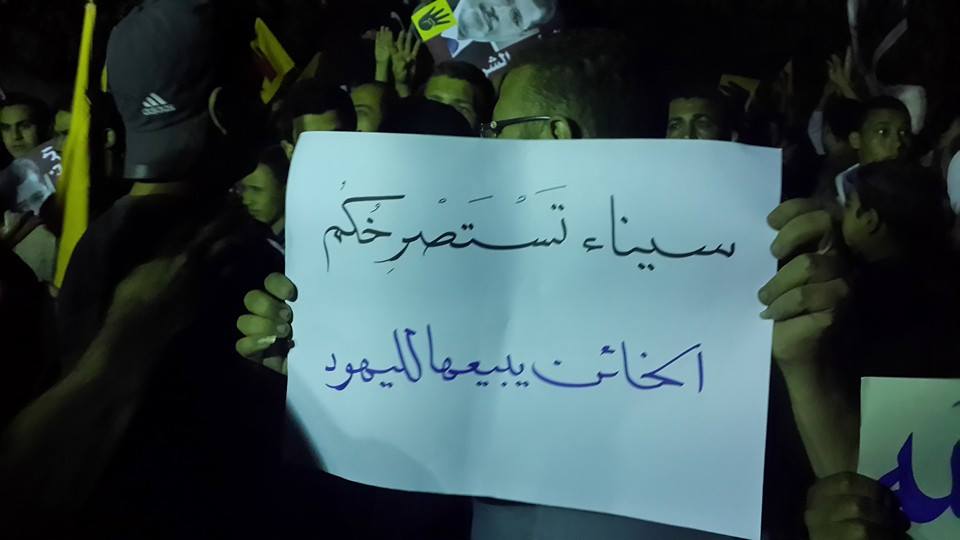 سيناء تَسْتَصْرِخُكُم
الخائن يبيعها لليهود
adidas